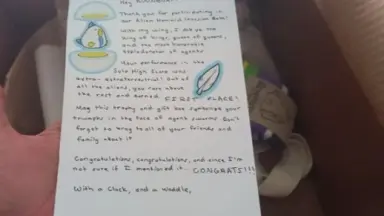 Hey
Thank you for participating in
our Alien Hominid Invasion Beta!
With my wing, I dub ye the
king of kings, queen of queens,
and the most honorable
of agents
Your performance in the
Solo High Score was
extra-extraterrestrial! Out of
all the aliens, you rose above
the rest and earned
FIRST PLACE!
May this trophy and gift box symbolize your
triumphs in the face of agent swarms. Don't
forget to brag to all of your friends and
family about it
Congratulations, congratulations, and since I'm
not sure if I mentioned it... CONGRATS!!!
With a Cluck, and a Waddle,